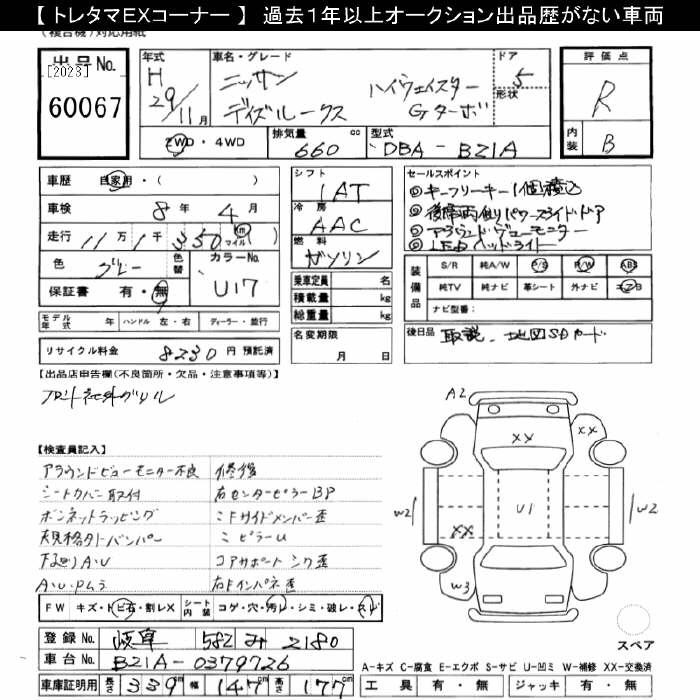 【 トレタマＥＸコーナー 】 過去１年以上オークション出品歴がない車両
出品No.
[2023]
60067
年式
H
29/11月
車名・グレード
ニッサン
デイズルークス
ハイウェイスター
Gターボ
ドア
5
形状
2WD・4WD
排気量
660
cc
型式
DBA-B21A
評価点
R
内装
B
車歴
自家用・(　　　)
車検
8年4月
走行
11万1千350
km
マイル
色
グレー
色替
カラーNo.
U17
保証書
有・無
シフト
IAT
冷房
AAC
燃料
ガソリン
乗車定員
名
積載量
kg
総重量
kg
セールスポイント
①キーフリーキー1個積込
②後席両側パワースライドドア
③アラウンドビューモニター
④LEDヘッドライト
装備品
S/R
純A/W
P/S
P/W
ABS
純TV
純ナビ
革シート
外ナビ
エアB
ナビ型番:
モデル年式
年
ハンドル
左・右
ディーラー・並行
リサイクル料金
8230
円
預託済
名変期限
月
日
後日品
取説、地図SDカード
【出品店申告欄(不良箇所・欠品・注意事項等)】
フロント社外グリル
【検査員記入】
アラウンドビューモニター不良
修復
シートカバー取付
右センターピラーBP
ボンネットラッピング
ミドサイドメンバー歪
規格外バンパー
ミピラーU
下廻りA・U
コアサポートシワ歪
右Fインパネ歪
FW
キズ・トビ石・割レX
シート内装
コゲ・穴・汚レ・シミ・破レ・スレ
登録No.
岐阜
582
み
2180
車台No.
B21A-0379726
車庫証明用
長さ
339cm
幅
147cm
高さ
177cm
A2
XX
XX
W2
U1
W2
XX
W3
スペア
A-キズ C-腐食 E-エクボ S-サビ U-凹ミ W-補修 XX-交換済
工具
有・無
ジャッキ
有・無